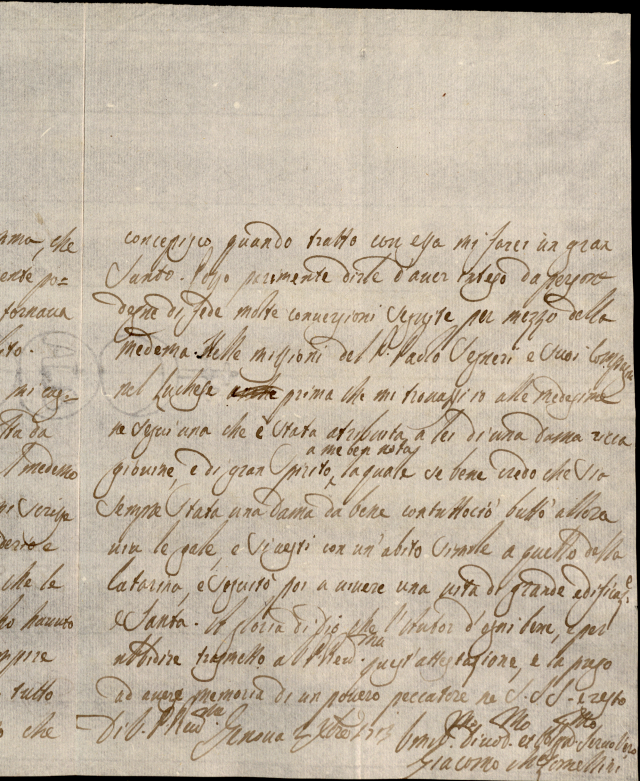 amo, che
ente po=
tornava
lto.
mi cag=
tta da
l medemo
ni scrisse
che la
ho havuto
empre
tutto
che
concepisco, quando tratto con essa mi farei un gran
Santo. Posso parimente dirle d'aver inteso da persone
degne di fede molte conversioni seguite per mezzo della
medema. Nelle missioni del P. Paolo Segneri e suoi Compagni
nel Luchese prima che mi trovassi io alle medesime
ne seguì una che è stata atribuita a lei di una dama ricca
a me ben nota
giovine, e di gran Spirito, la quale se bene credo che sia
sempre stata una dama da bene contuttociò buttò allora
via le gale, e si vestì con un'abito simile a quello della
Catarina, e seguitò poi a vivere una vita di grande edificaz.e
e Santa. A gloria di Dio che è l'Autor d'ogni bene, e per
ubbidire trasmetto a V. P. Rev.ma quest'attestazione, e la prego
ad avere memoria di un povero peccatore ne S. S. S. e resto
Di V. P. Rev.ma Genova
Giacomo